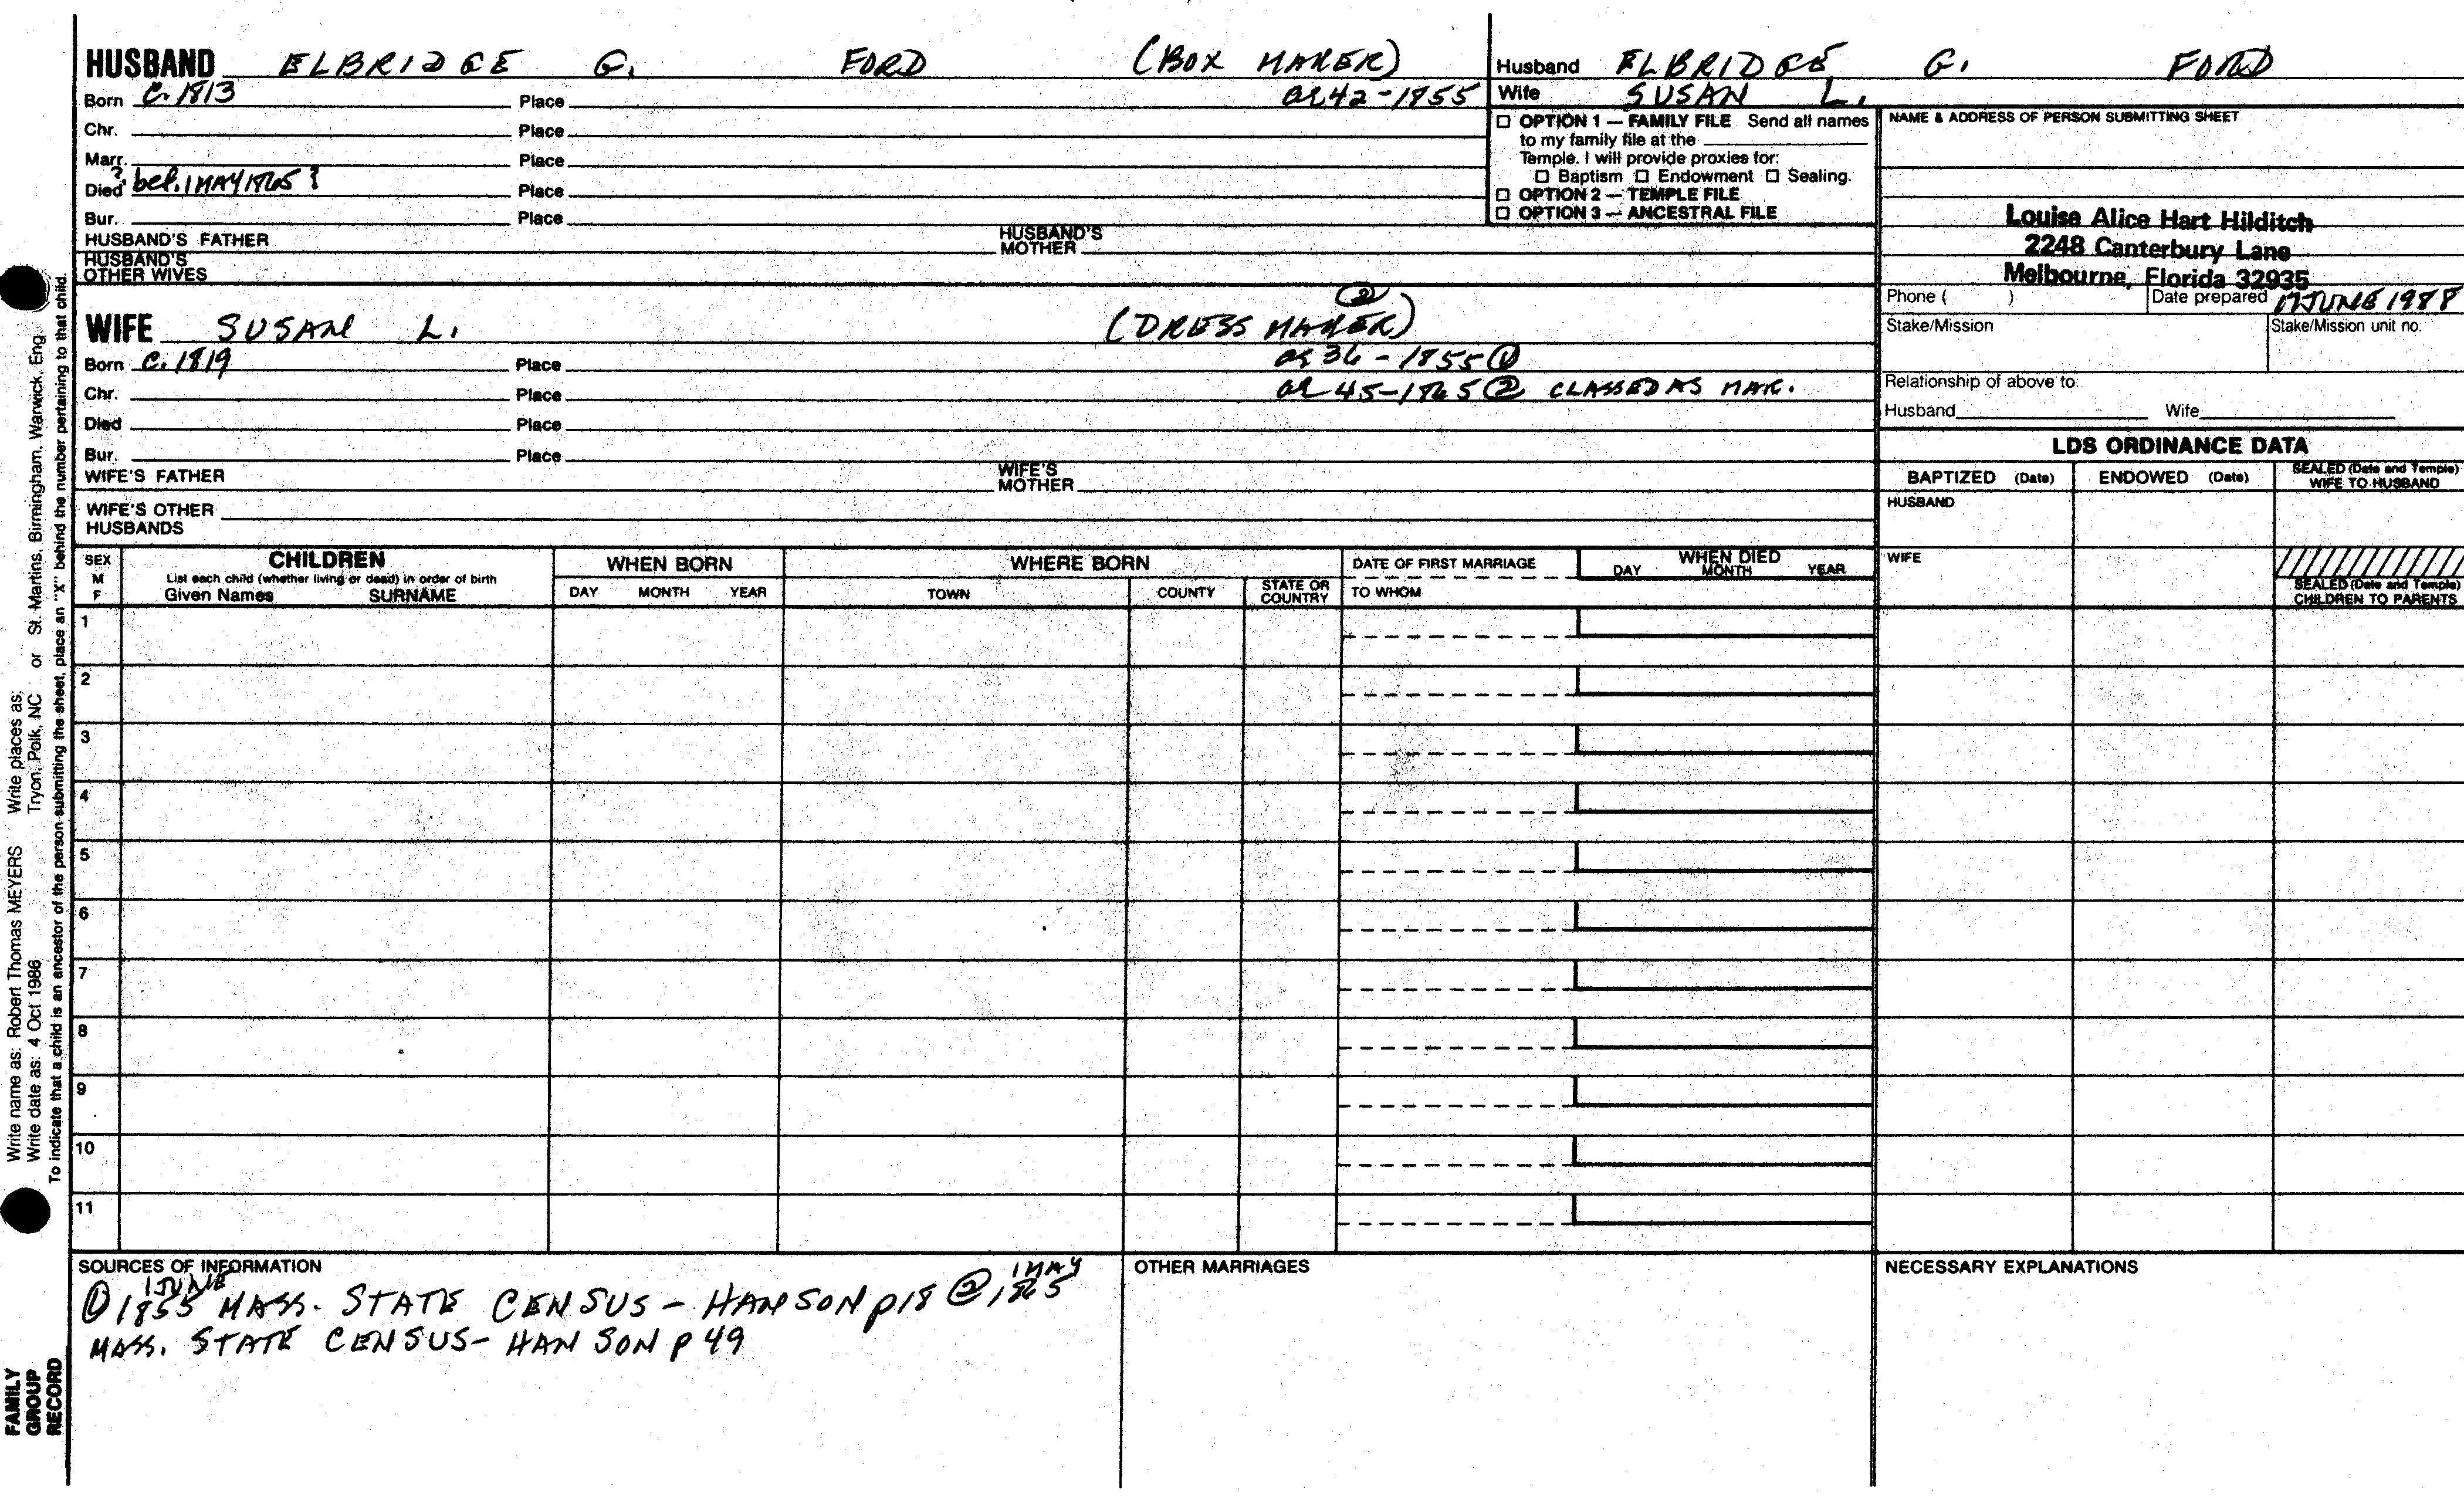 HUSBAND ELBRIDGE G. FORD (BOX MAKER)
Born C. 1813 Place ae 42-1855
Chr. Place
Marr. Place
Died ? bef. 1 MAY 1865 ? Place
Bur. Place
HUSBAND'S FATHER HUSBAND'S MOTHER
HUSBAND'S OTHER WIVES
Husband ELBRIDGE G. FORD
Wife SUSAN L.
☐ OPTION 1 — FAMILY FILE Send all names
to my family file at the
Temple. I will provide proxies for:
☐ Baptism ☐ Endowment ☐ Sealing.
☐ OPTION 2 — TEMPLE FILE
☐ OPTION 3 — ANCESTRAL FILE
NAME & ADDRESS OF PERSON SUBMITTING SHEET
Louise Alice Hart Hilditch
2248 Canterbury Lane
Melbourne, Florida 32935
Phone ( ) Date prepared 17 JUNE 1988
Stake/Mission Stake/Mission unit no.
Relationship of above to:
Husband Wife
②
WIFE SUSAN L. (DRESS MAKER)
Born C. 1819 Place ae 36-1855 ①
Chr. Place ae 45-1865 ② CLASSED AS MAR.
Died Place
Bur. Place
WIFE'S FATHER WIFE'S MOTHER
WIFE'S OTHER HUSBANDS
LDS ORDINANCE DATA
BAPTIZED (Date) ENDOWED (Date) SEALED (Date and Temple) WIFE TO HUSBAND
HUSBAND
WIFE
SEALED (Date and Temple) CHILDREN TO PARENTS
SEX M F
CHILDREN
List each child (whether living or dead) in order of birth
Given Names SURNAME
WHEN BORN
DAY MONTH YEAR
WHERE BORN
TOWN COUNTY STATE OR COUNTRY
DATE OF FIRST MARRIAGE
TO WHOM
WHEN DIED
DAY MONTH YEAR
1
2
3
4
5
6
7
8
9
10
11
SOURCES OF INFORMATION
① 1 JUNE 1855 MASS. STATE CENSUS - HANSON p18 ② 1 MAY 1865
MASS. STATE CENSUS - HANSON p 49
OTHER MARRIAGES
NECESSARY EXPLANATIONS
Write name as: Robert Thomas MEYERS Write places as:
Write date as: 4 Oct 1986 Tryon, Polk, NC or St. Martins, Birmingham, Warwick, Eng.
To indicate that a child is an ancestor of the person submitting the sheet, place an "X" behind the number pertaining to that child.
FAMILY
GROUP
RECORD